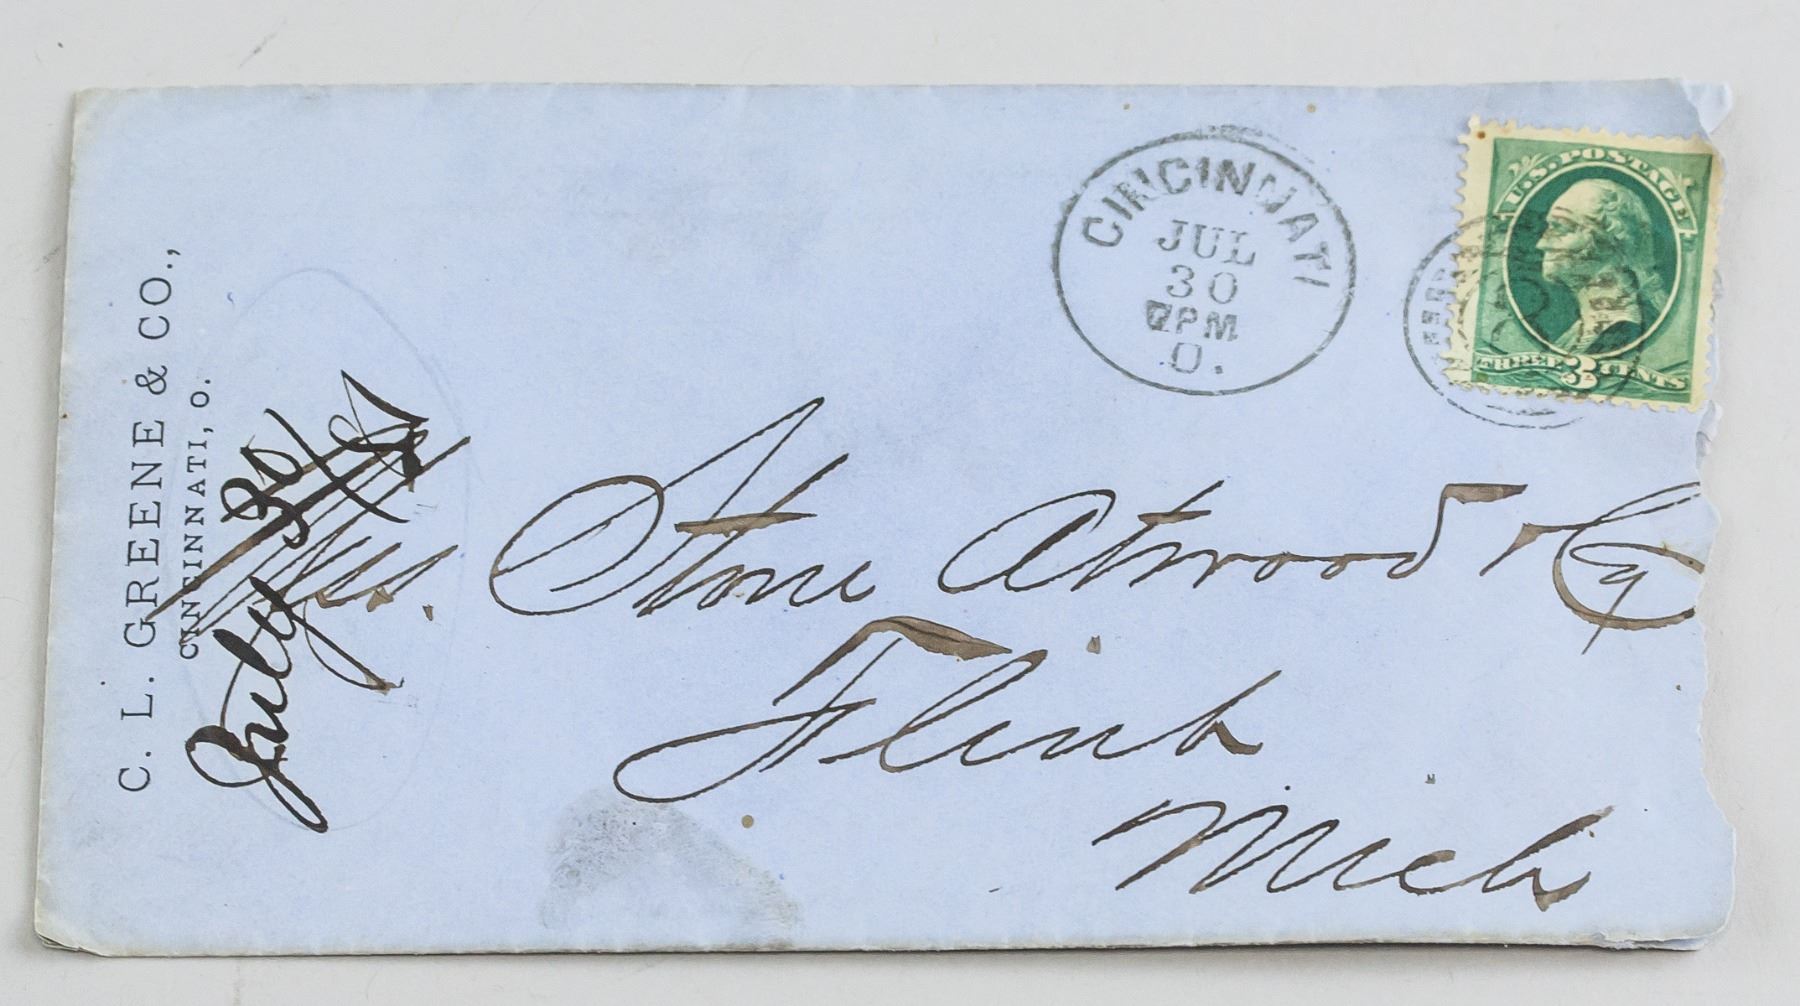 C. L. GREENE & CO.,
CINCINNATI, O.
July 30/
CINCINNATI
JUL
30
PM
O.
U.S. POSTAGE
THREE 3 CENTS
Stone Atwood & Co
Flint
Mich